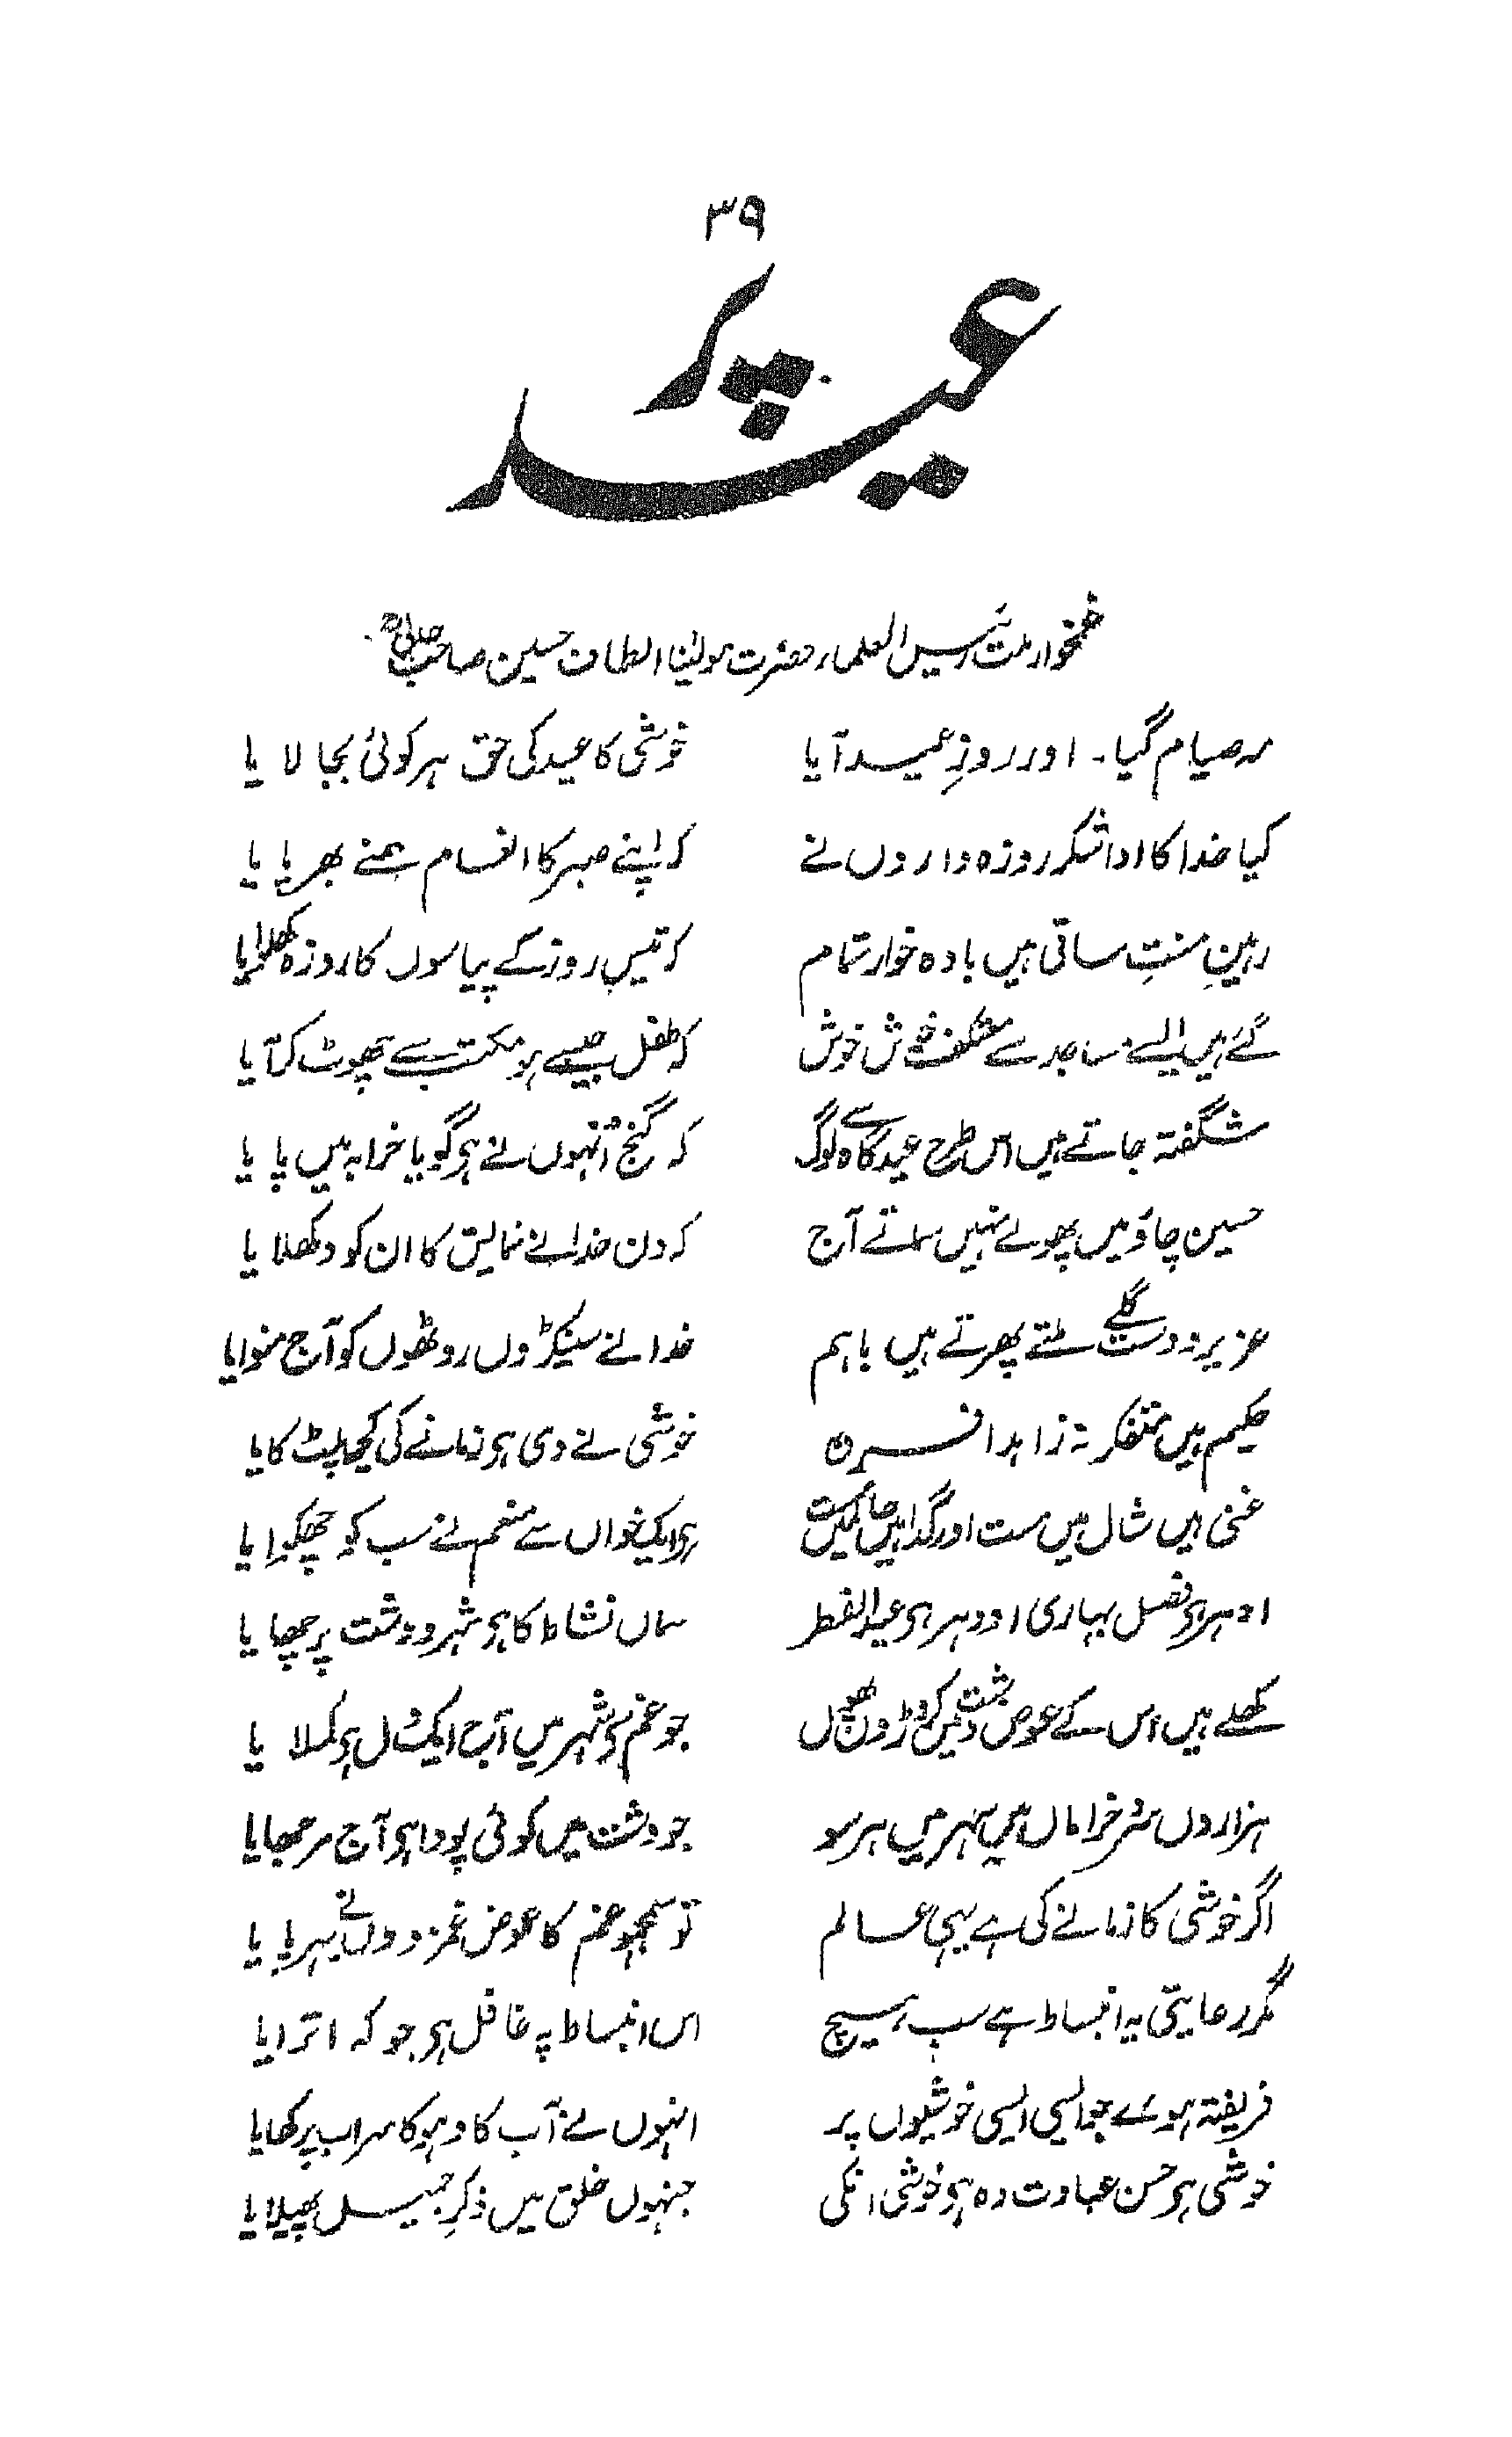 ۳۹
عید پر
غمخوار ملت رئیس العلماء حضرت مولیٰنا الطاف حسین صاحب حالیؒ
مہ صیام گیا۔ اور روزِ عید آیا خوشی کا عید کی حق ہر کوئی بجا لا یا
کیا خدا کا ادا شکر روزہ داروں نے کہ اپنے صبر کا انعام ہمنے بھر پا یا
رہینِ منتِ ساقی ہیں بادہ خوار تمام کہ تیس روز کے پیاسوں کا روزہ کھلوایا
گئے ہیں ایسے مساجد سے خوش خوش کہ طفل جیسے ہو مکتب سے چھوٹ کر آیا
شگفتہ جاتے ہیں اس طرح عیدگاہ سے لوگ کہ گنج اُنہوں نے ہی گویا خرابہ میں پا یا
حسین چاؤ میں پھولے نہیں سماتے آج کہ دن خدا نے نمایش کا ان کو دکھلا یا
عزیز و دوست گلے ملتے پھرتے ہیں باہم خدا نے سینکڑوں روٹھوں کو آج منوایا
حکیم ہیں متفکر نہ زاہد افسردہ خوشی نے دی ہی زمانے کی کچھ پلٹ کایا
غنی ہیں شال میں مست اور گدا ہیں کمبل میں ہر ایک خواں سے منعم نے سب کو چھکوا یا
ادہر ہی فصل بہاری اودہر ہی عیدالفطر سماں نشاط کا ہی شہر و دشت پر چھا یا
کھلے ہیں اس کے عوض دشت میں کروڑوں پھول جو غم سی شہر میں آج ایک دل ہی کملا یا
ہزاروں سرو خراماں ہیں شہر میں ہر سو جو دشت میں کوئی پودا ہی آج مرجھایا
اگر خوشی کا زمانے کی ہے یہی عالم تو سمجھو غم کا عوض غمزدوں نے بہر پا یا
مگر رعایتی یہ انبساط ہے سب ہیچ اس انبساط پہ غافل ہی جو کہ اترایا
فریفتہ ہوئے جو ایسی ایسی خوشیوں پر انہوں نے آب کا دہوکا سراب پر کھایا
خوشی ہی حسن عبادت وہ ہی خوشی انکی جنہوں خلق میں ذکرِ جمیل پھیلایا